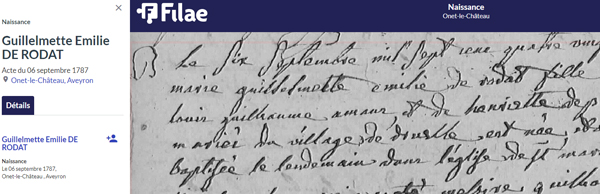 Naissance
Guillelmette Emilie
DE RODAT
Acte du 06 septembre 1787
Onet-le-Château, Aveyron
Détails
Guillelmette Emilie DE
RODAT
Naissance
Le 06 septembre 1787,
Onet-le-Château, Aveyron
Filae
Naissance
Onet-le-Château
Le Six Septembre mil Sept cent quatre vingt
marie guillelmette emilie de rodat fille
louis guilhaume amans, et de henriette de
mariés du village de druelle est née, et
Baptisée le lendemain dans l'église de st